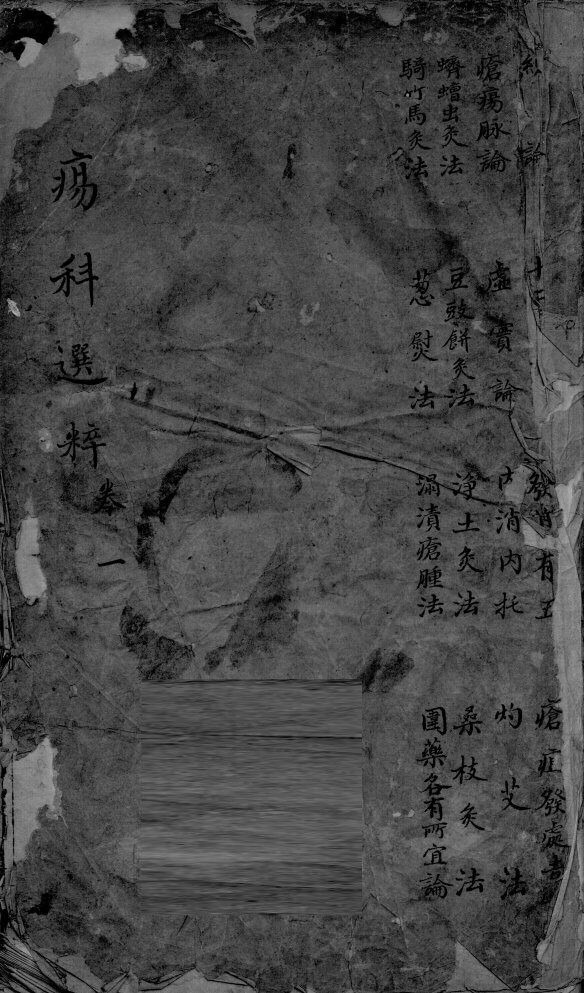 論 發背有五 瘡疽發處
瘡瘍脉論 虛實論 內消內托 灼艾法
蠐螬虫灸法 豆豉餅灸法 淨土灸法 桑枝灸法
騎竹馬灸法 葱熨法 溻漬瘡腫法 圍藥各有所宜論
瘍科選粹 卷一